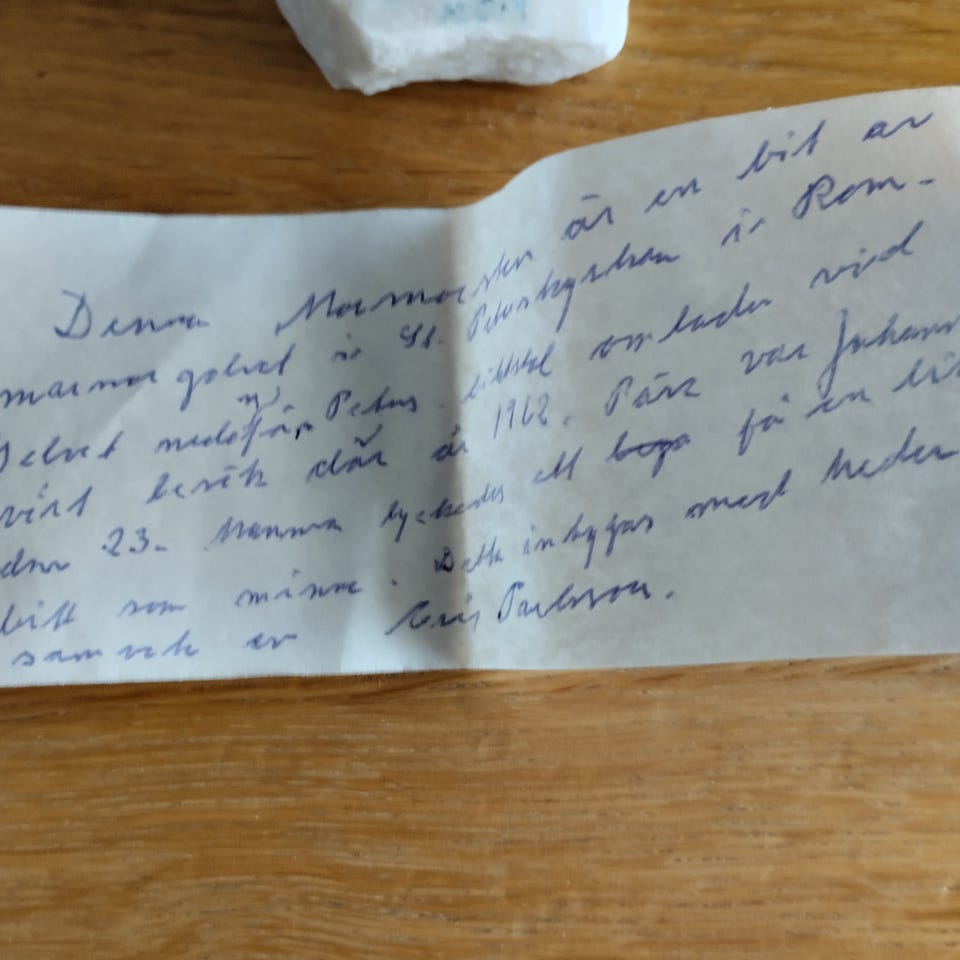 Denna Marmorsten är en bit av
marmor golvet i St. Peterskyrkan i Rom-
Golvet nedanför Petrus omlades vid
vårt besök där år 1962. Påve var Johann
den 23. Mamma lyckades att få en lit
bitt som minne. Detta intygas med heder
samvete av Paulsson.